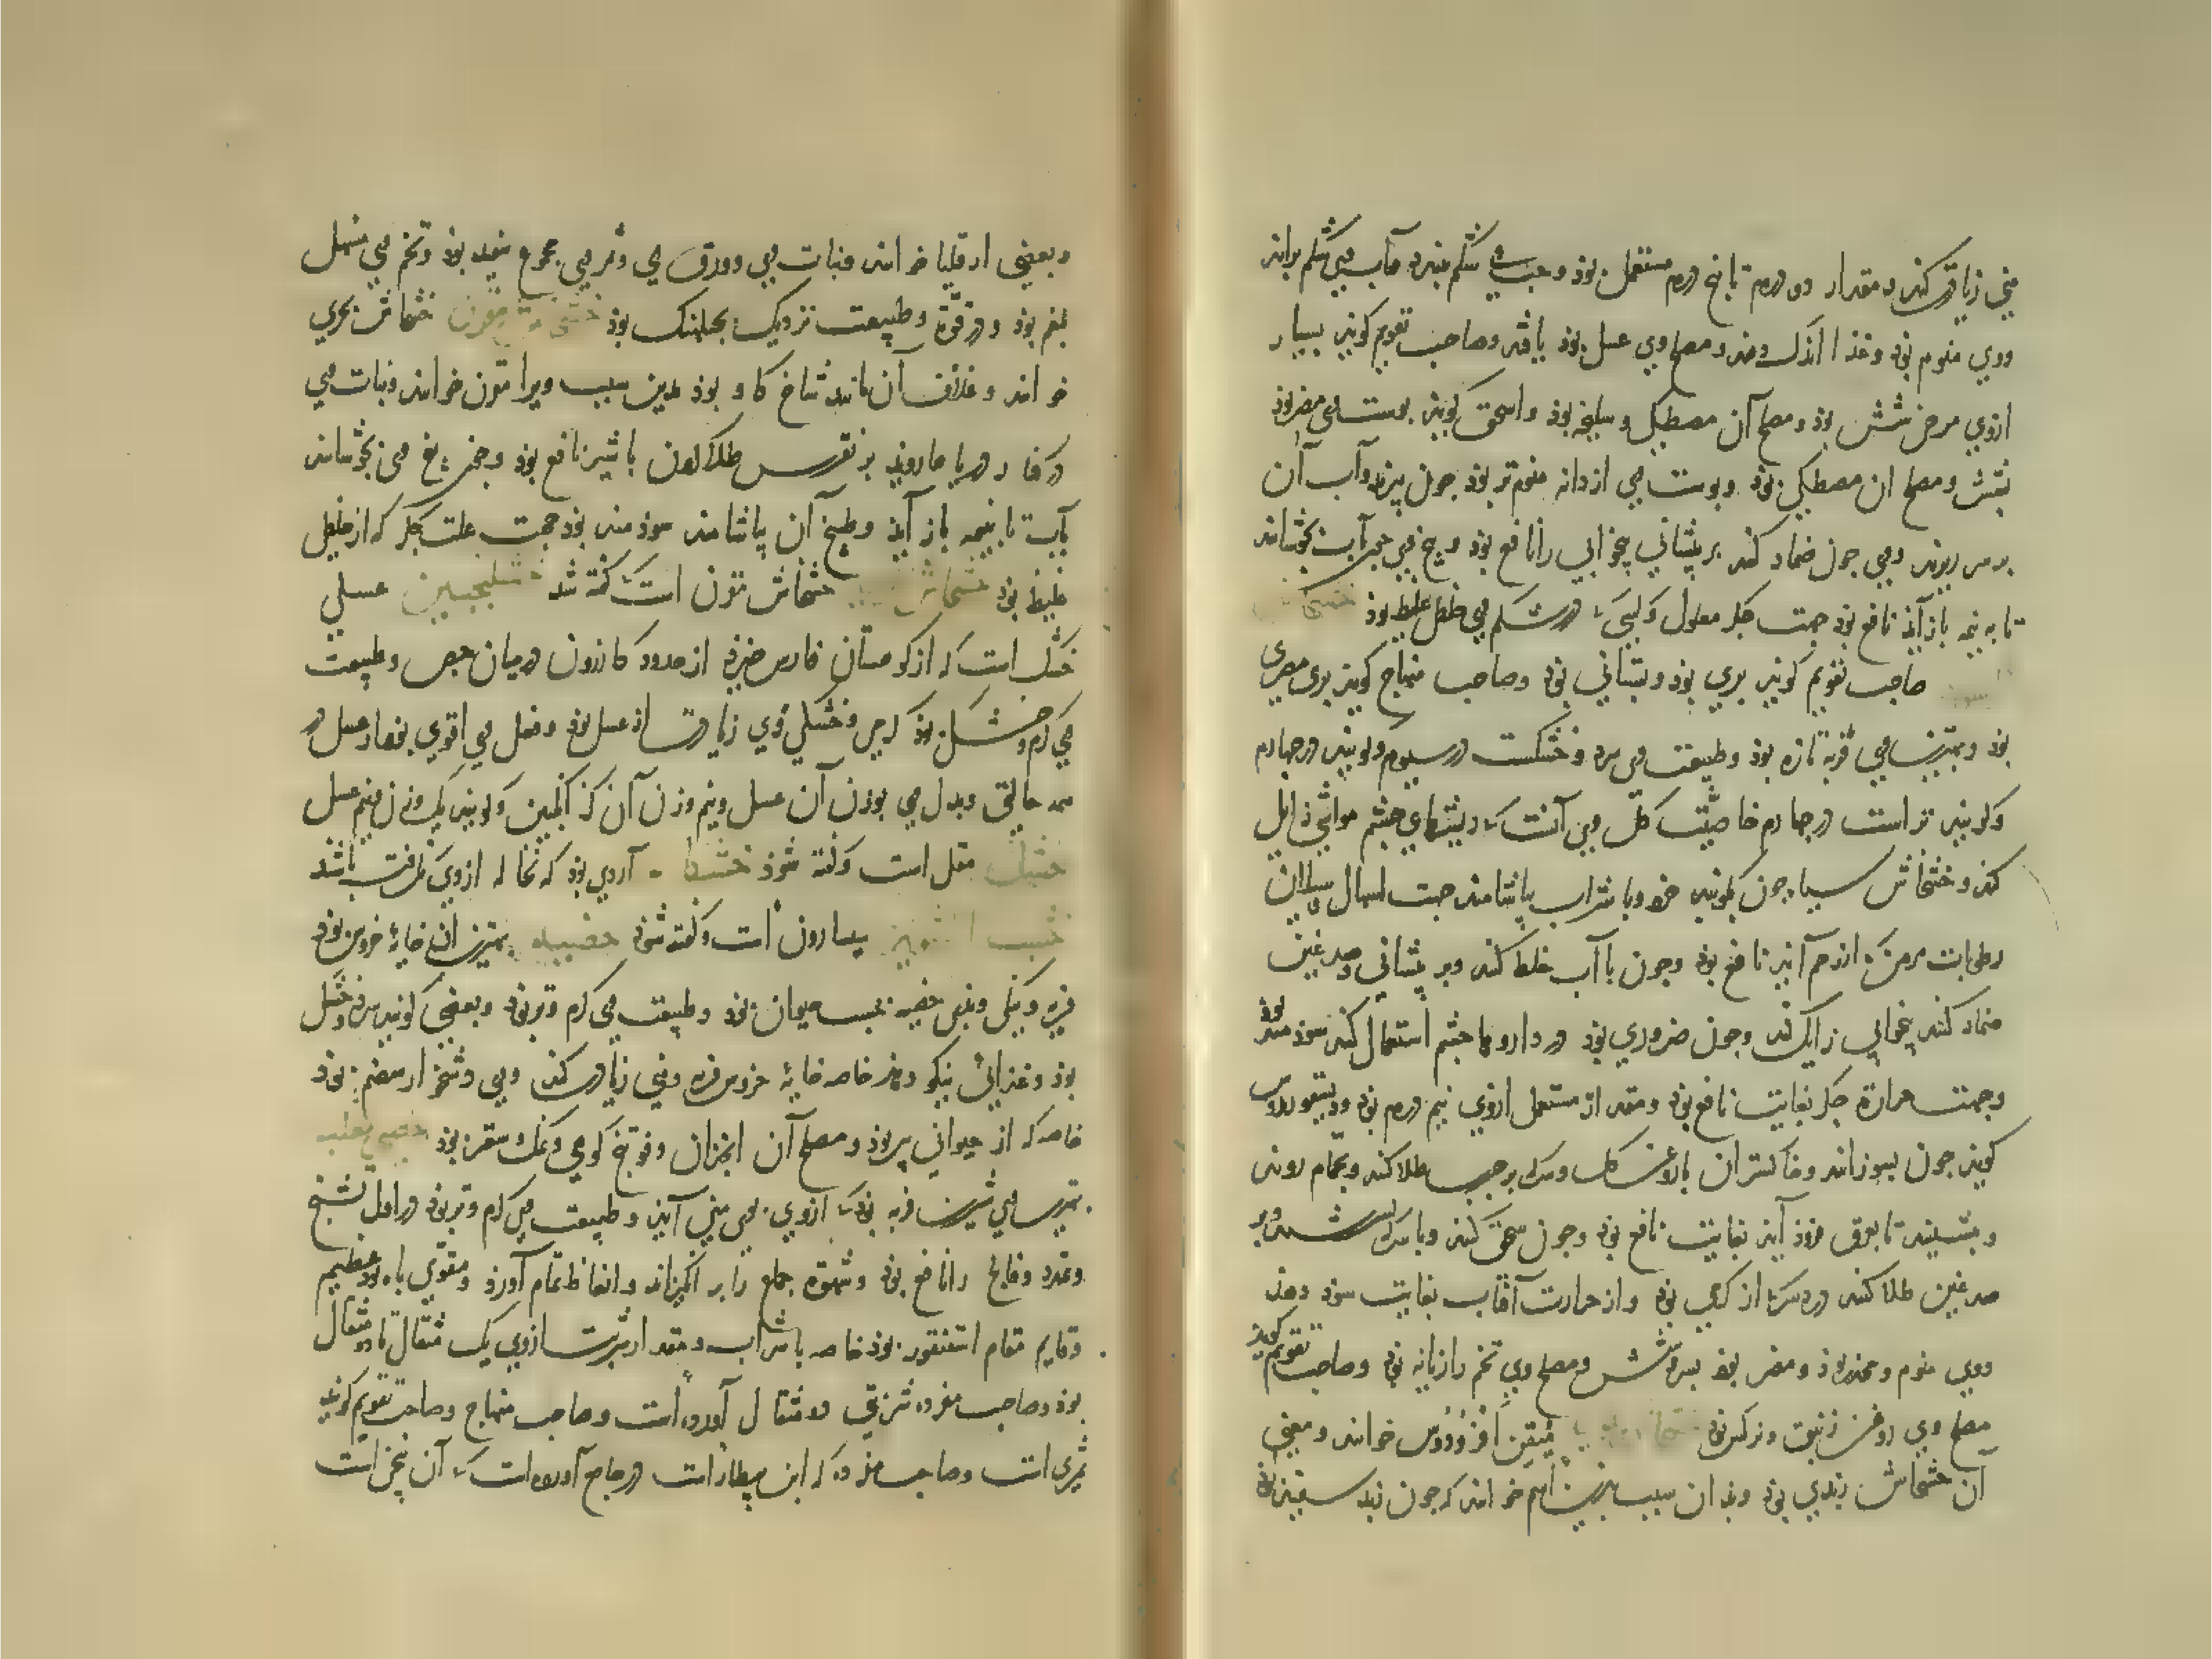 منی زیادت کند و مقدار دو درم تا پنج درم مستعمل بود و جب وی شکم ببندد و آب وی شکم براند
ووی منوم بود و غذا اندک دهد و مصلح وی عسل بود یا قند و صاحب تقویم کوید بسیار
ازوی مرض شش بود و مصلح آن مصطکی و سلیخه بود و اسحق کوید پوست وی مضر بود
بشش و مصلح ان مصطکی بود و پوست وی از دانه منوم تر بود جون بپزند و آب آن
بر سر ریزند ووی جون ضماد کنند بر پیشانی بیخوابی را نافع بود و بیخ وی جون بآب بجوشانند
تا به نیمه باز آید نافع بود جهت جکر معلول و کسی که در شکم وی خلط غلیظ بود خشخاش
اسود صاحب تقویم کوید بری بود و بستانی بود و صاحب منهاج کوید بری مصری
بود و بهترین وی فربه تازه بود و طبیعت وی سرد و خشکست در سیوم و کویند در جهارم
و کویند تر است در جهارم خاصیت کل وی آنست که ریشهای جشم مواشی زایل
کند و خشخاش سیاه جون بکوبند خرد و با شراب بیاشامند جهت اسهال و سیلان
رطوبات مزمن که از رحم آید نافع بود و جون با آب خلط کنند و بر پیشانی و صدغین
ضماد کنند بیخوابی زایل کند و جون ضروری بود در داروها جشم استعمال کنند سودمند بود
و جهت حرارة جکر بغایت نافع بود و مقدار مستعمل ازوی نیم درم بود و دیسقوریدوس
کوید جون بسوزانند و خاکستر آن با روغن کل و سرکه بر جرب طلا کنند و بحمام روند
و بنشینند تا بعرق فرود آید بغایت نافع بود و جون سحق کنند و با سرکه بسرشند و بر
صدغین طلا کنند درد سر که از کرمی بود و از حرارت آفتاب بغایت سود دهد
ووی منوم و مخدر بود و مضر بود بسر و شش و مصلح وی تخم رازیانه بود و صاحب تقویم کوید
مصلح وی روغن زنبق و نرکس بود خشخاش میقن افرودوس خوانند و معنی
آن خشخاش زبدی بود و بدان سبب بدین اسم خوانند که جون زبد سفید بود
و بعضی ارقلیا خوانند و نبات وی و ورق وی و ثمر وی مجموع سفید بود و تخم وی مسهل
بلغم بود و در قوة و طبیعت نزدیک بجبلهنک بود خشخاش مقرن خشخاش بحری
خوانند و غلاف آن مانند شاخ کاو بود بدین سبب ویرا مقرن خوانند و نبات وی
در کنار دریاها روید بر نقرس طلا کردن با شیر نافع بود و جون بیخ وی بجوشانند
بآب تا بنیمه باز آید و طبیخ آن بیاشامند سودمند بود جهت علت جکر که از خلطی
غلیظ بود خشخاش عسلی خشخاش مقرن است کفته شد خشکنجبین عسلی
خشک است که از کوهستان فارس خیزد از حدود کازرون درمیان جص و طبیعت
وی کرم و خشک بود کرمی و خشکی وی زیادت از عسل بود و فعل وی اقوی بود از عسل در
همه حالتی و بدل وی بوزن آن عسل و نیم وزن آن کزانکبین و کویند یک وزن و نیم عسل
خشل مقل است و کفته شود خشکار آردی بود که نخاله ازوی نکرفته باشند
خشب الشونیز بیسارون است و کفته شود خصیه بهترین آن خایهٔ خروس بود
فربه و نیکی و بدی خصیه بحسب حیوان بود و طبیعت وی کرم و تر بود و بعضی کویند سرد و خشک
بود و غذائی نیکو دهد خاصه خایهٔ خروس فربه و منی زیادت کند ووی دشخوار هضم بود
خاصه که از حیوانی پیر بود و مصلح آن انجدان و فوتنج کوهی و نمک سعتر بود خصی الثعلب
بهترین وی شیرین فربه بود که ازوی بوی منی آید و طبیعت وی کرم و تر بود در اول تشنج
و تمدد و فالج را نافع بود و شهوة جماع را بر انکیزاند و انعاظ تمام آورد و مقوی باه بود عظیم
و قایم مقام اسقنقور بود خاصه با شراب و مقدار شربت ازوی یک مثقال تا دو مثقال
بود و صاحب مفرده شربتی دو مثقال آورده است و صاحب منهاج و صاحب تقویم کویند
ثمری است و صاحب مفرده که ابن بیطار است در جامع آورده است که آن بیخی است